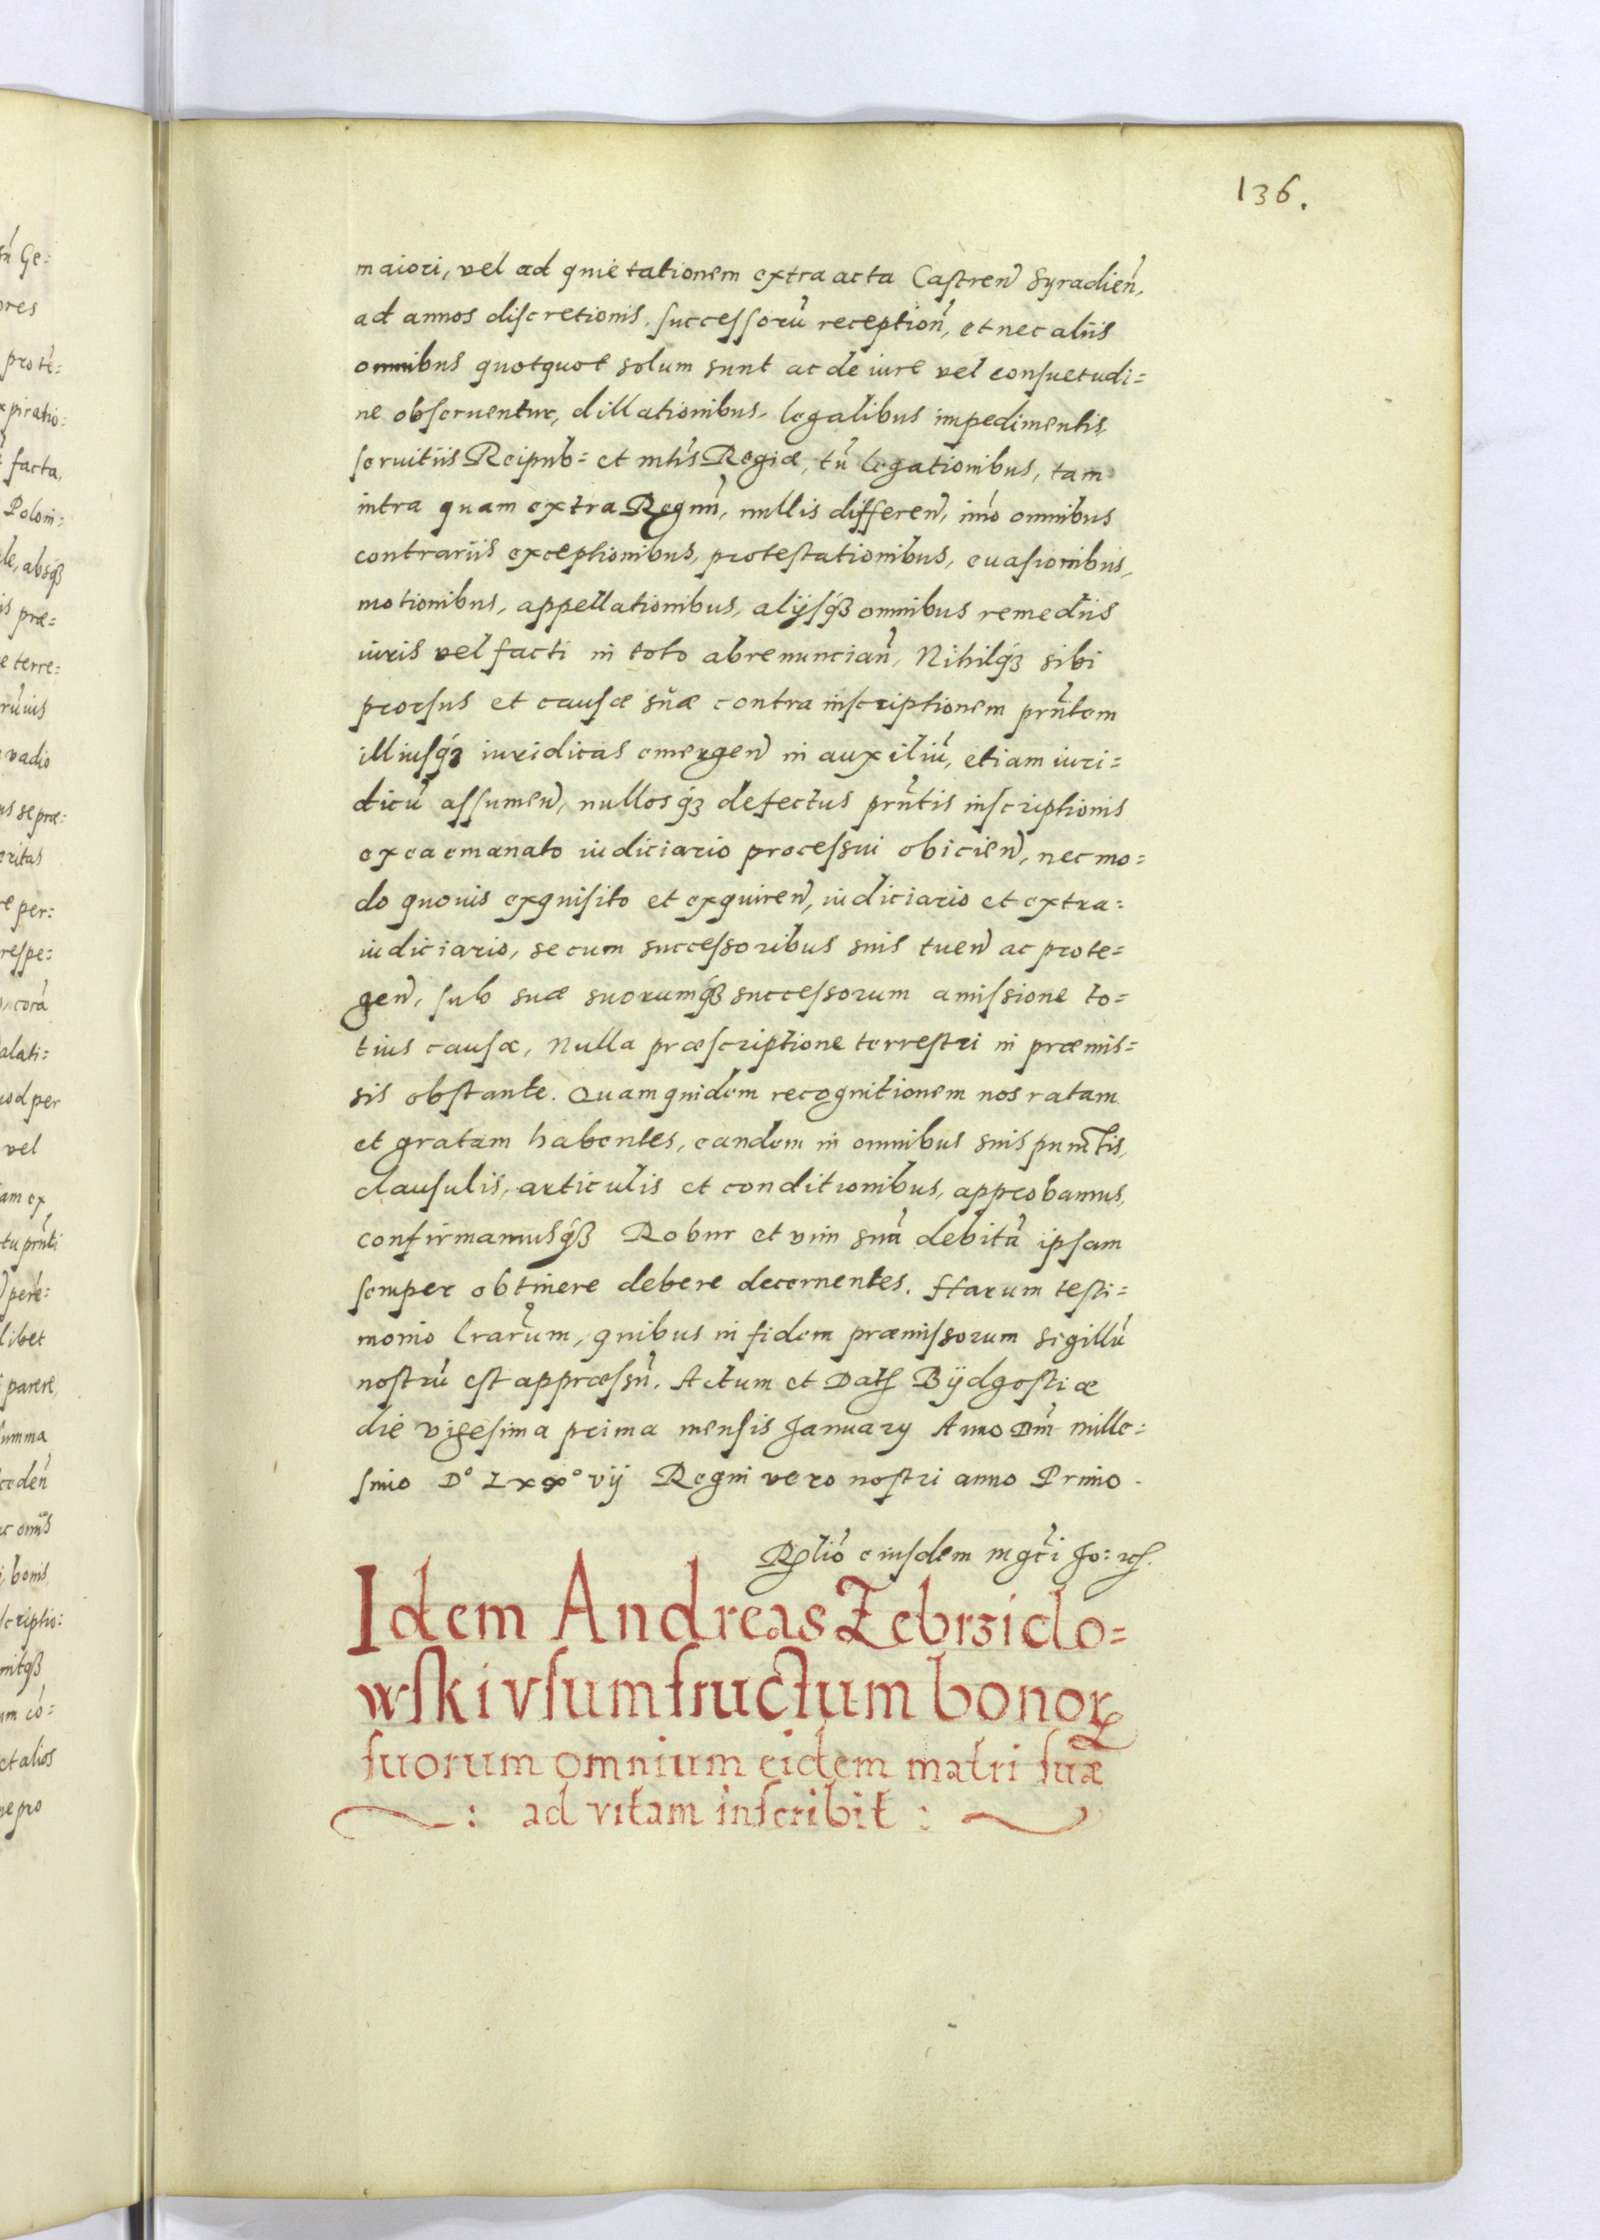 136.
maiori, vel ad quietationem extra acta Castren̄ Syradien̄,
ad annos discretionis, successorū reception̄, et nec aliis
omnibus quotquot solum sunt ac de iure vel consuetudi=
ne obseruentur, dillationibus, legalibus impedimentis,
seruitiis Reipub= et mtis Regiæ, tū legationibus, tam
intra quam extra Regnū, nullis differen̄, imo omnibus
contrariis exceptionibus, protestationibus, euasionibus,
motionibus, appellationibus, alijsqȝ omnibus remediis
iuris vel facti in toto abrenuncian̄, Nihilqȝ sibi
prorsus et causæ suæ contra inscriptionem prn̄tem
illiusqȝ iuridicas emergen̄ in auxiliū, etiam iuri=
dicū assumen̄, nullosqȝ defectus prn̄tis inscriptionis
ex ea emanato iudiciario processui obicien̄, nec mo=
do quouis exquisito et exquiren̄, iudiciario et extra=
iudiciario, se cum successoribus suis tuen̄ ac prote=
gen̄, sub suæ suorumqȝ successorum amissione to=
tius causæ, Nulla præscriptione terrestri in præmis=
sis obstante. Quam quidem recognitionem nos ratam
et gratam habentes, eandem in omnibus suis punctis,
clausulis, articulis et conditionibus, approbamus,
confirmamusqȝ Robur et vim suā debitā ipsam
semper obtinere debere decernentes. Harum testi=
monio lrarum, quibus in fidem præmissorum sigillū
nostrū est appræssū. Actum et Datꝭ Bÿdgostiæ
die vigesima prima mensis January Anno Dnī mille=
simo D° Lxx° vij Regni vero nostri anno Primo.
Rꝭlió eiusdem mgci Jo: ꝛcꝭ.
Idem Andreas Zebrzido=
wski vsumfructum bonoꝝ
suorum omnium eidem matri suæ
: ad vitam inscribit :